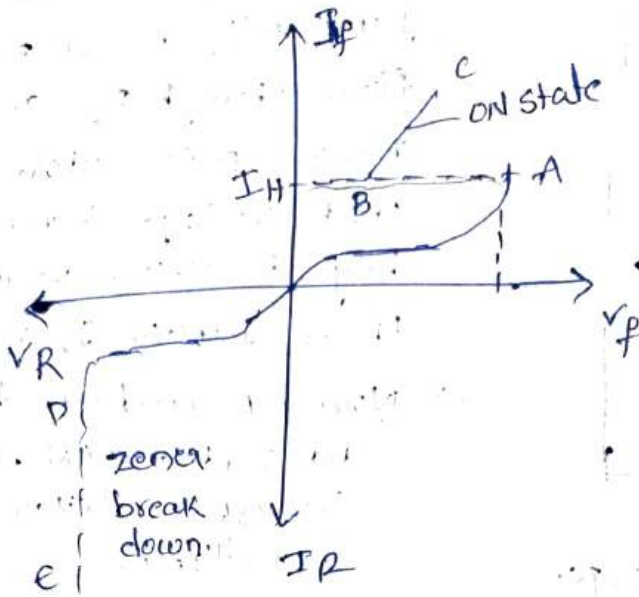 If
C
ON state
IH
A
B
VR
Vf
D
zener
break
down.
E
IR